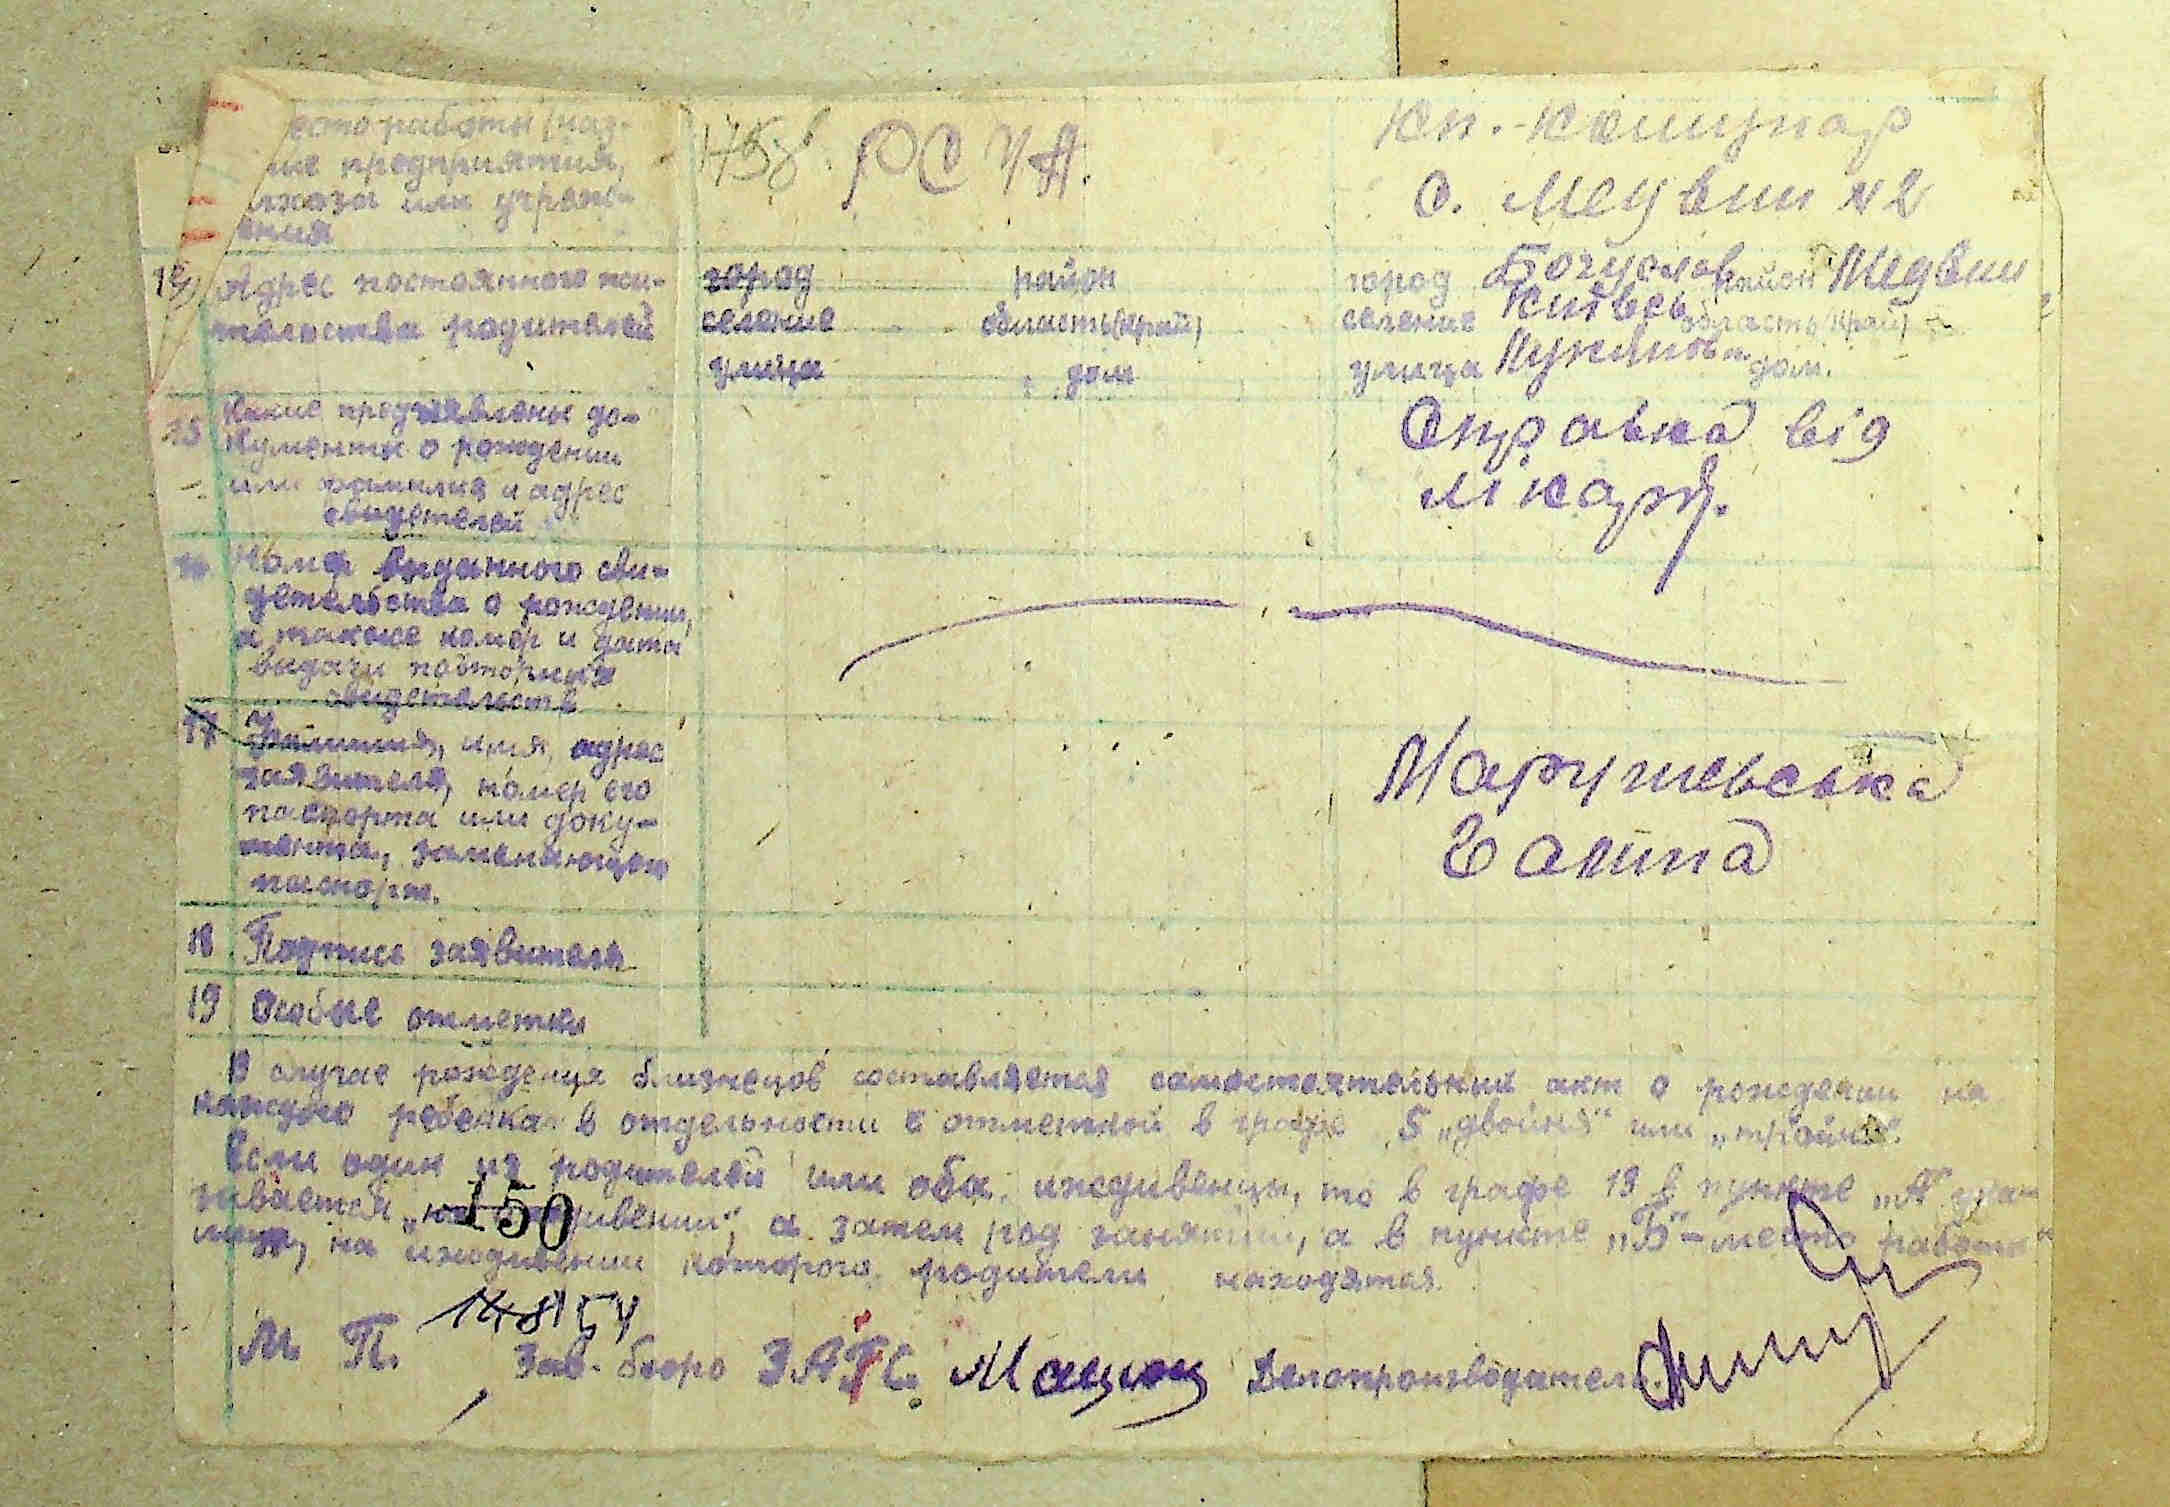 место работы (наз-
ние предприятия,
лхоза или учреж-
ения
1458. РСЧА.
Кп.-Комунар
с. Медвин №2
Адрес постоянного жи-
тельства родителей
город район
селение область (край)
улица дом
город Богуслав район Медвин
селение область (край)
улица дом.
15 Какие предъявлены до-
кументы о рождении
или фамилия и адрес
свидетелей
Справка від
лікаря.
Номер выданного сви-
детельства о рождении,
а также номер и дата
выдачи повторных
свидетельств
17 Фамилия, имя, адрес
заявителя, номер его
паспорта или доку-
мента, заменяющего
паспорт.
Марушевська
Галина
18 Подпись заявителя
19 Особые отметки
В случае рождения близнецов составляется самостоятельный акт о рождении на
каждого ребенка в отдельности с отметкой в графе 5 „двойня“ или „тройня“.
Если один из родителей или оба иждивенцы, то в графе 13 в пункте „А“ ука-
зывается „на иждивении“, а затем род занятий, а в пункте „Б“ – место работы
лица, на иждивении которого родители находятся.
150
148154
М. П. Зав. бюро ЗАГС. Делопроизводитель